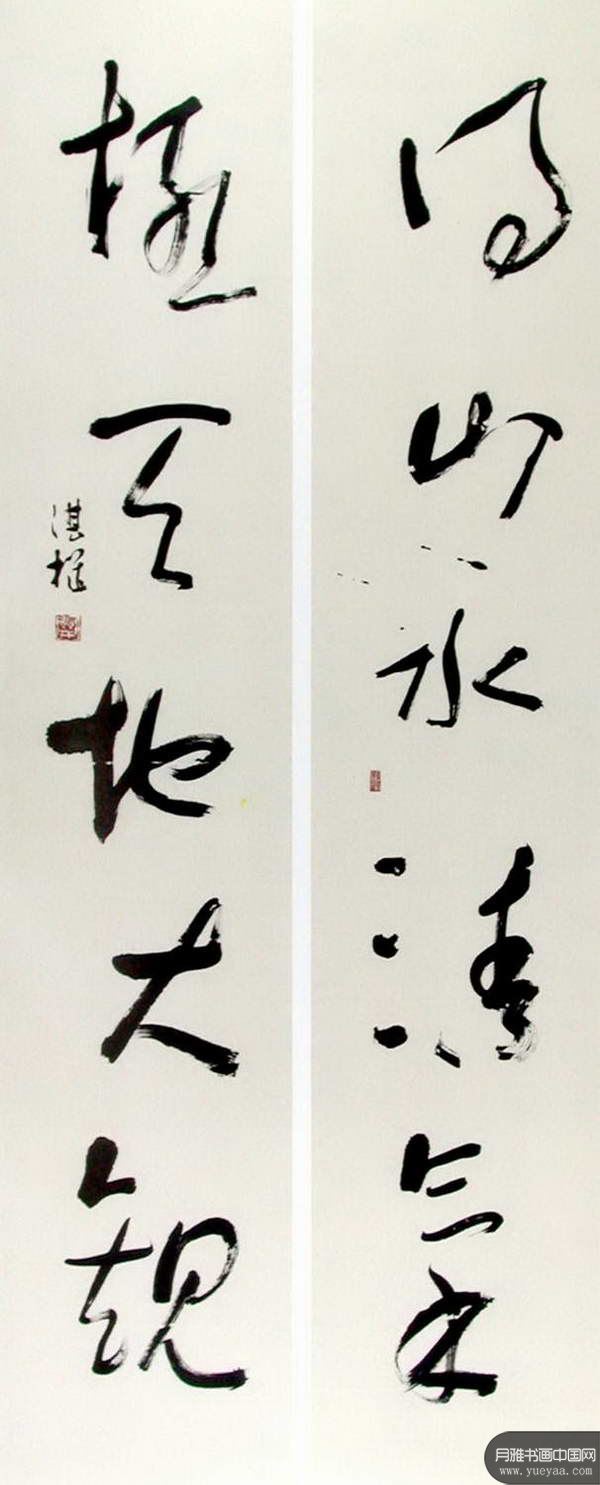 得山水清氣
極天地大觀
淇根
月雅书画中国网
www.yueyaa.com